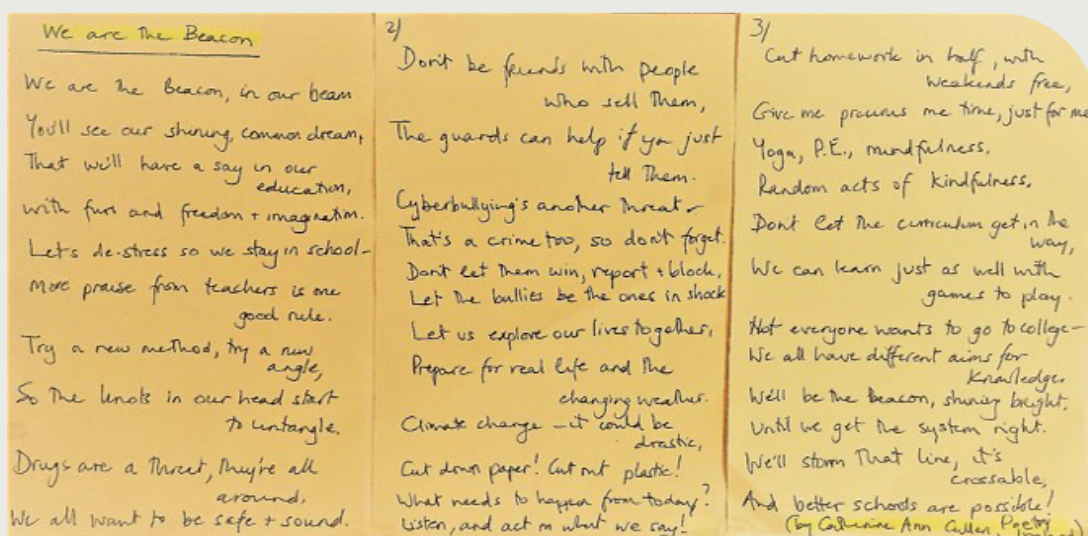 We are the Beacon
We are the Beacon, in our beam
You'll see our shining, common dream,
That we'll have a say in our
education,
With fun and freedom + imagination.
Let's de-stress so we stay in school -
More praise from teachers is one
good rule.
Try a new method, try a new
angle,
So the knots in our head start
to untangle.
Drugs are a threat, they're all
around,
We all want to be safe + sound.
2/
Don't be friends with people
who sell them,
The guards can help if you just
tell them.
Cyberbullying's another threat -
That's a crime too, so don't forget.
Don't let them win, report + block,
Let the bullies be the ones in shock
Let us explore our lives together,
Prepare for real life and the
changing weather.
Climate change - it could be
drastic,
Cut down paper! Cut out plastic!
What needs to happen from today?
Listen, and act on what we say!
3/
Cut homework in half, with
weekends free,
Give me precious me time, just for me
Yoga, P.E., mindfulness,
Random acts of kindfulness,
Don't let the curriculum get in the
way,
We can learn just as well with
games to play.
Not everyone wants to go to college -
We all have different aims for
knowledge.
We'll be the Beacon, shining bright,
Until we get the system right.
We'll storm that line, it's
crossable,
And better schools are possible!
(by Catherine Ann Cullen, Poetry
Ireland)